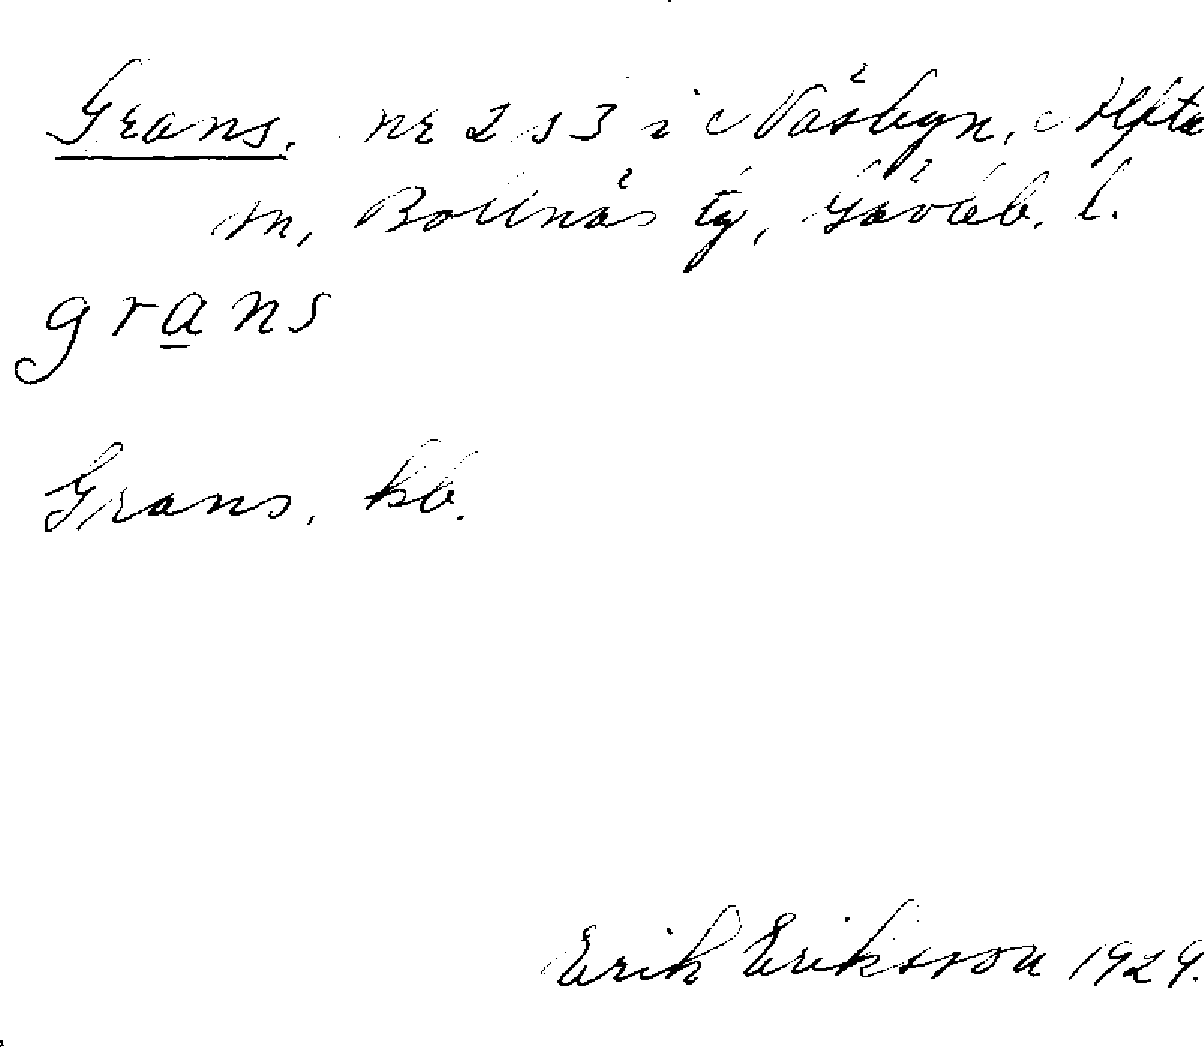 Grans, nr 2 s 3 i Näsbyn, Alfta
sn, Bollnäs tg, Gävleb. l.
grans
Grans, kb.
Erik Eriksson 1929.